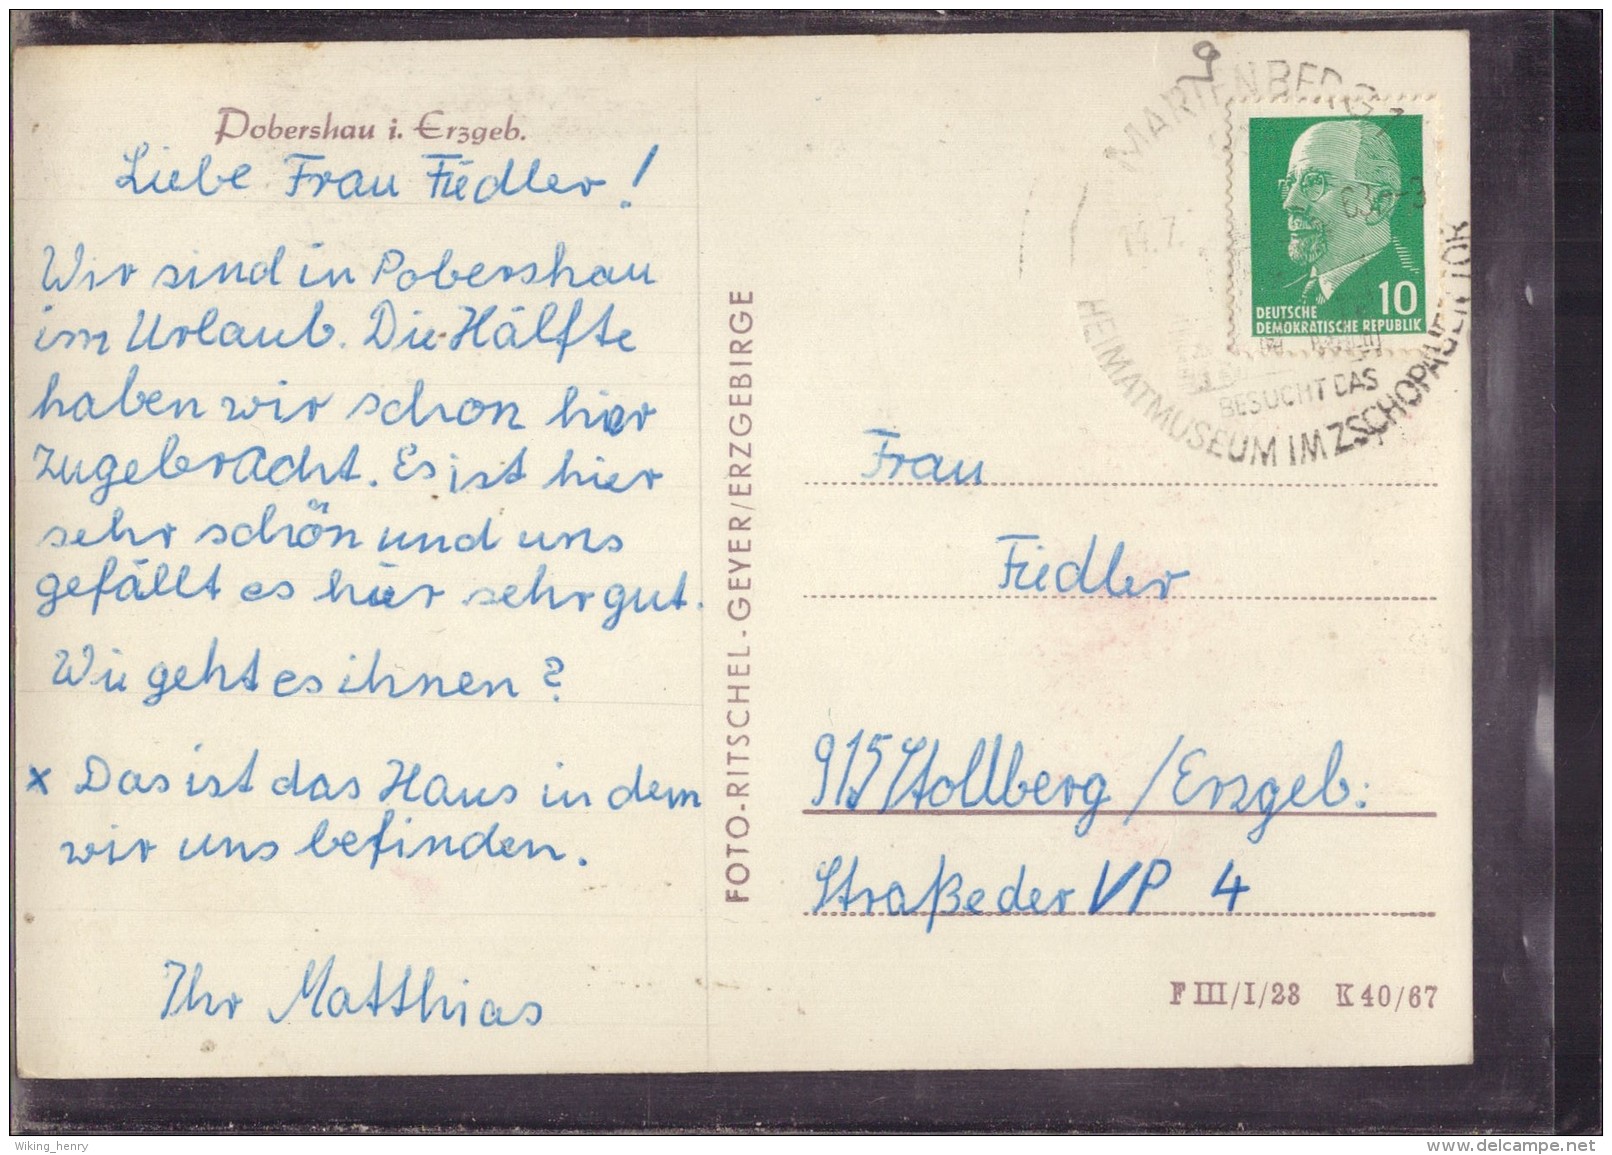 Pobershau i. Erzgeb.
Liebe Frau Fiedler!
Wir sind in Pobershau
im Urlaub. Die Hälfte
haben wir schon hier
zugebracht. Es ist hier
sehr schön und uns
gefällt es hier sehr gut.
Wie geht es ihnen?
x Das ist das Haus in dem
wir uns befinden.
Ihr Matthias
FOTO-RITSCHEL-GEYER/ERZGEBIRGE
MARIENBERG 1
14.7.
BESUCHT DAS
HEIMATMUSEUM IM ZSCHOPAUER TOR
10
DEUTSCHE
DEMOKRATISCHE REPUBLIK
Frau
Fiedler
915 Stollberg /Erzgeb.:
Straße der VP 4
F III/I/23 K 40/67
Wiking_henry
www.delcampe.net